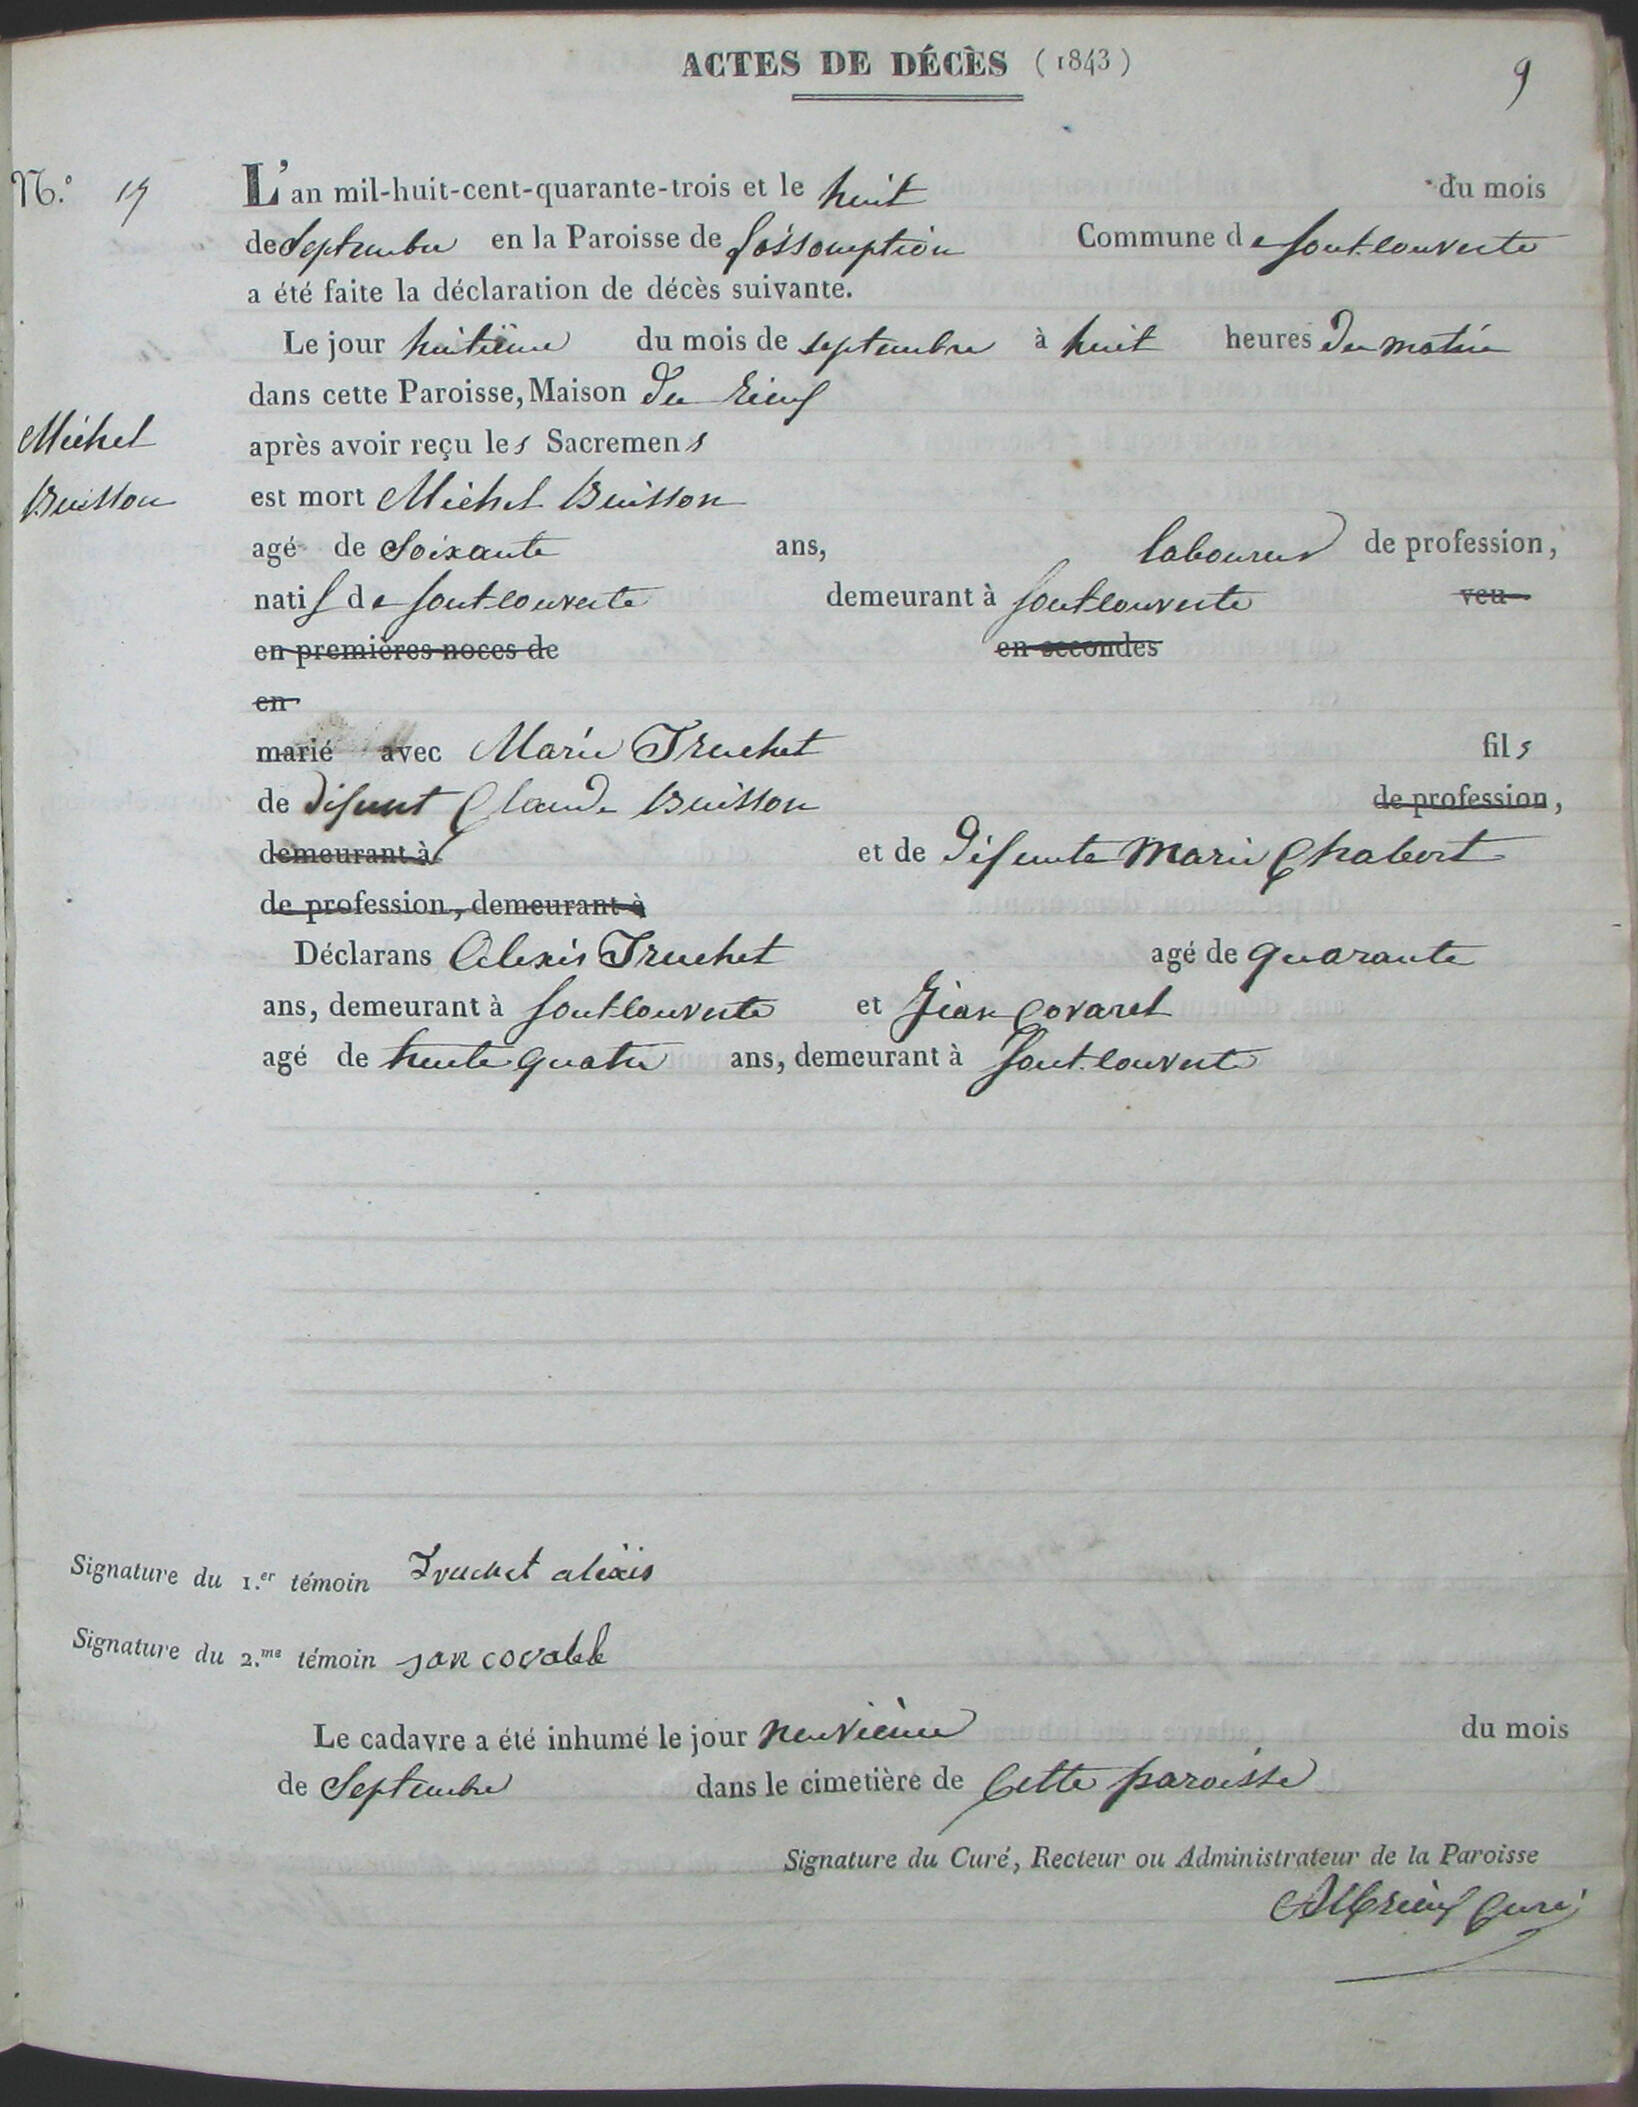 ACTES DE DÉCÈS (1843)
9
N.º 17 L'an mil-huit-cent-quarante-trois et le huit du mois
de Septembre en la Paroisse de l'assomption Commune de font-couverte
a été faite la déclaration de décès suivante.
Le jour huitième du mois de septembre à huit heures du matin
dans cette Paroisse, Maison du rieuf
après avoir reçu les Sacremens
Michel
Buisson
est mort Michel Buisson
agé de Soixante ans, laboureur de profession,
natif de fontcouverte demeurant à fontcouverte veu
en premières noces de en secondes
en
marié avec Marie Truchet fils
de défunt Claude Buisson de profession,
demeurant à et de défunte Marie Chabert
de profession, demeurant à
Déclarans Alexis Truchet agé de quarante
ans, demeurant à fontcouverte et Jean Covarel
agé de trente quatre ans, demeurant à font-couverte
Signature du 1.er témoin Truchet alexis
Signature du 2.me témoin jan
Le cadavre a été inhumé le jour neuvième du mois
de Septembre dans le cimetière de cette paroisse
Signature du Curé, Recteur ou Administrateur de la Paroisse
curé